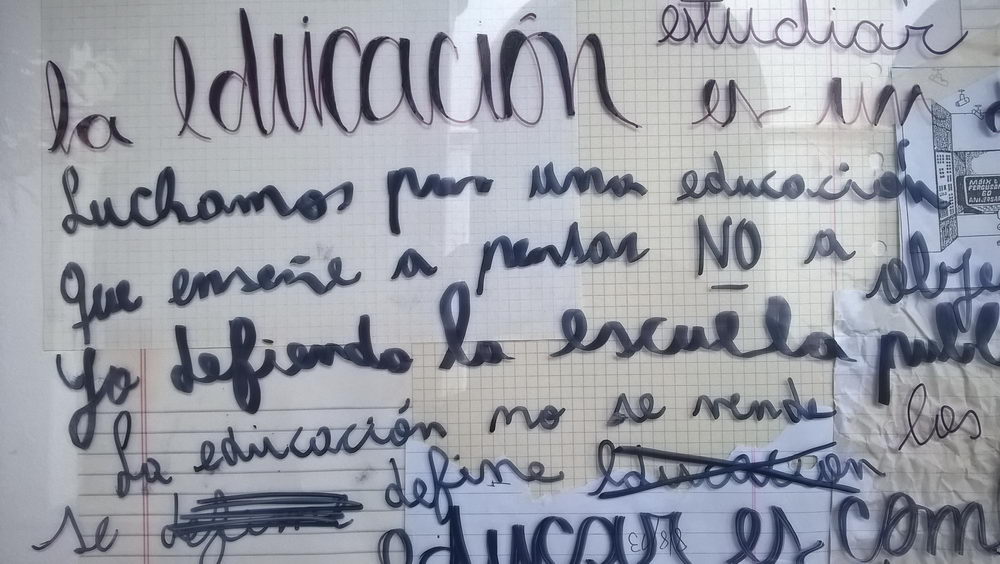 estudiar
la Educación es un
Luchamos por una educación
que enseñe a pensar NO a
Yo defiendo la escuela
La educación no se vende los
se define Educación
educar es com